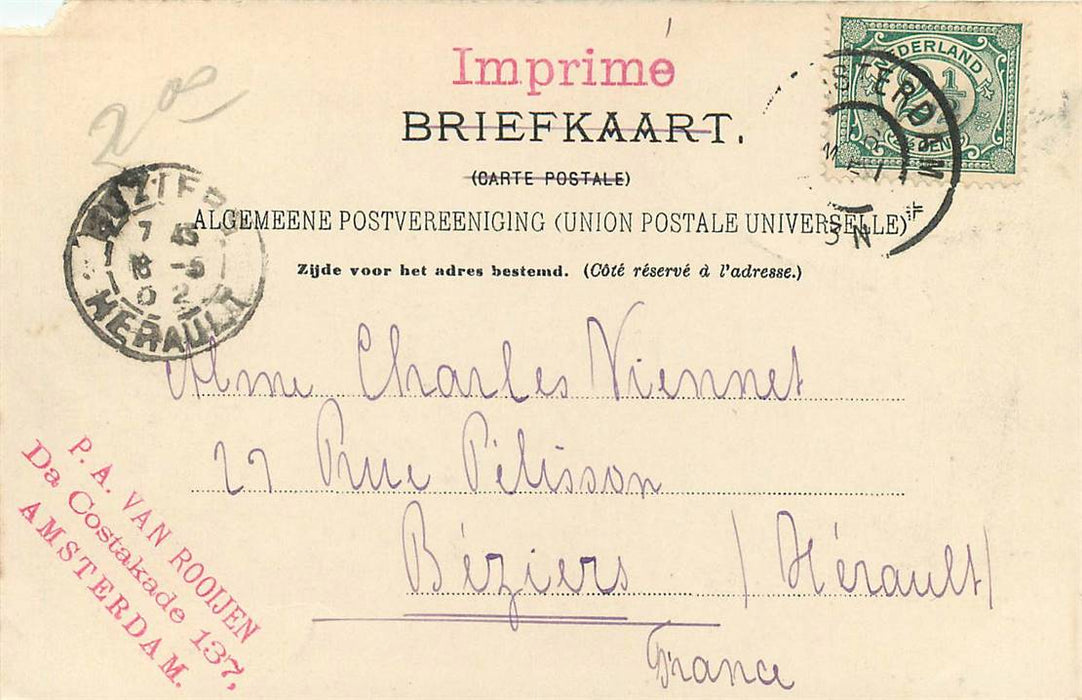 Imprimé
BRIEFKAART.
(CARTE POSTALE)
ALGEMEENE POSTVEREENIGING (UNION POSTALE UNIVERSELLE)
Zijde voor het adres bestemd. (Côté réservé à l'adresse.)
NEDERLAND
1/2
AMSTERDAM
3 N
2 00
7
HERAULT
0 2
Mme Charles Viennet
27 Rue Pélisson
Béziers (Hérault)
France
P. A. VAN ROOIJEN
Da Costakade 137,
AMSTERDAM.